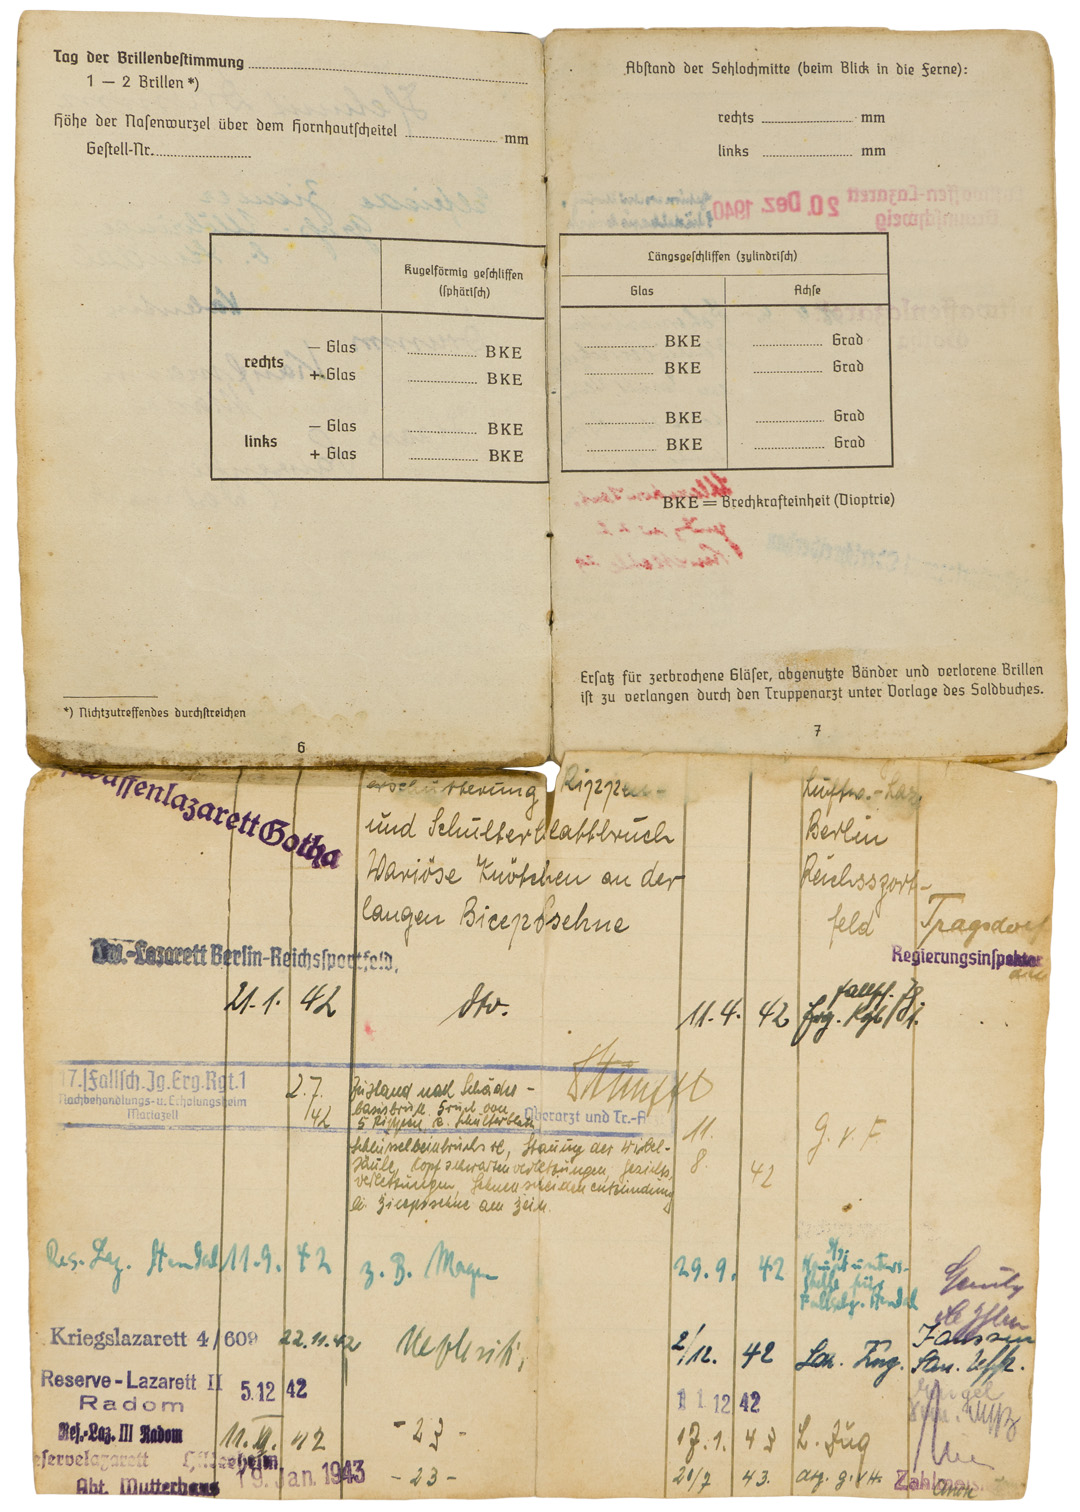 Tag der Brillenbestimmung
1 — 2 Brillen *)
Höhe der Nasenwurzel über dem Hornhautscheitel mm
Gestell-Nr.
Kugelförmig geschliffen
(sphärisch)
rechts
— Glas BKE
+ Glas BKE
links
— Glas BKE
+ Glas BKE
*) Nichtzutreffendes durchstreichen
6
Abstand der Sehlochmitte (beim Blick in die Ferne):
rechts mm
links mm
20. Dez. 1940
Längsgeschliffen (zylindrisch)
Glas Achse
BKE Grad
BKE Grad
BKE Grad
BKE Grad
BKE = Brechkrafteinheit (Dioptrie)
Ersatz für zerbrochene Gläser, abgenutzte Bänder und verlorene Brillen
ist zu verlangen durch den Truppenarzt unter Vorlage des Soldbuches.
7
waffenlazarett Gotha
erschütterung Rippen- Luftw.-Laz.
und Schulterblattbruch Berlin
Wariöse Knötchen an der Reichsszort-
langen Bicepssehne feld Tragsdorf
Lw.-Lazarett Berlin-Reichssportfeld, Regierungsinspektor
21.1. 42 dto. 11.4. 42
17./Fallsch.Jg.Erg.Rgt.1
Nachbehandlungs-u.Erholungsheim
Mariazell
2.7. 42 Zustand nach Schädel-
basisbruch, Bruch von
5 Rippen u. Schulterblatt
Oberarzt und Tr.-A
Schlüsselbeinbruch re, Stauung der Wirbel-
säule, Kopfschwartenverletzungen, Gesichts
verletzungen, Sehnenscheidenentzündung
11. 8. 42 g. v. F.
Res. Laz. Stendal 11.9. 42 z. B. Magen 29.9. 42
Kriegslazarett 4/609 22.11.42 2/12. 42 Laz. Zug. Janssen
San. Uffz.
Reserve-Lazarett II 5.12 42 11 12 42
Radom
Res.-Laz. III Radom 11. 42 - 23 - 17.1. 43 L. Zug
Reservelazarett Hildesheim
Abt. Mutterhaus 19. Jan. 1943 - 23 - 20/7 43. Zahlmeis